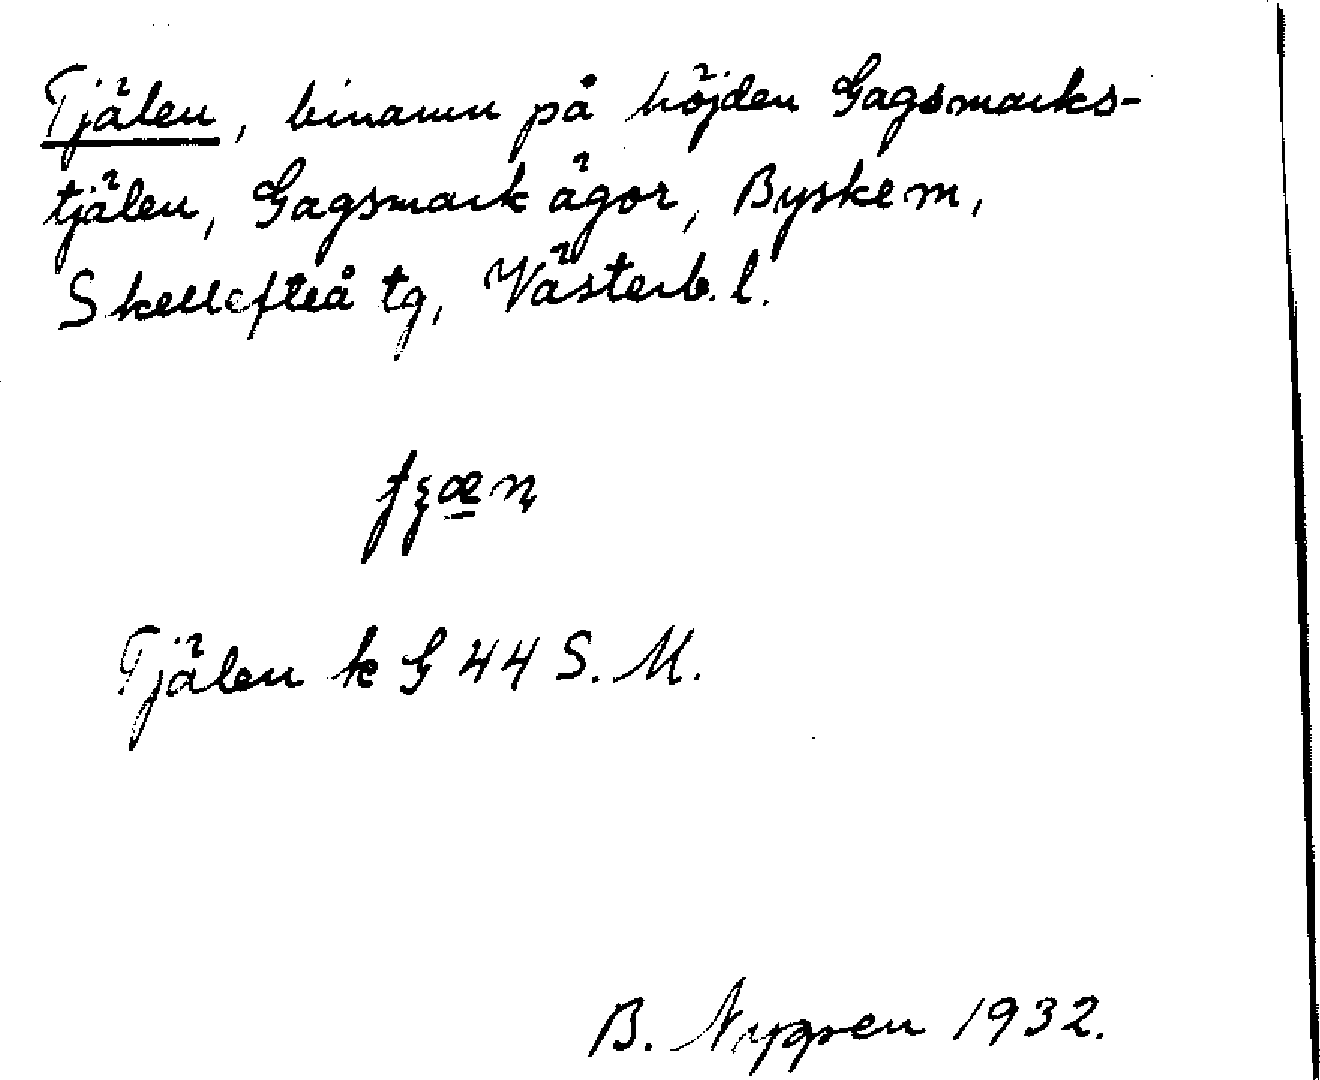 Tjälen, binamn på höjden Gagsmarks-
tjälen, Gagsmark ägor, Byske m,
Skellefteå tg, Västerb. l.
Tjälen k G 44 S. M.
B. Nygren 1932.